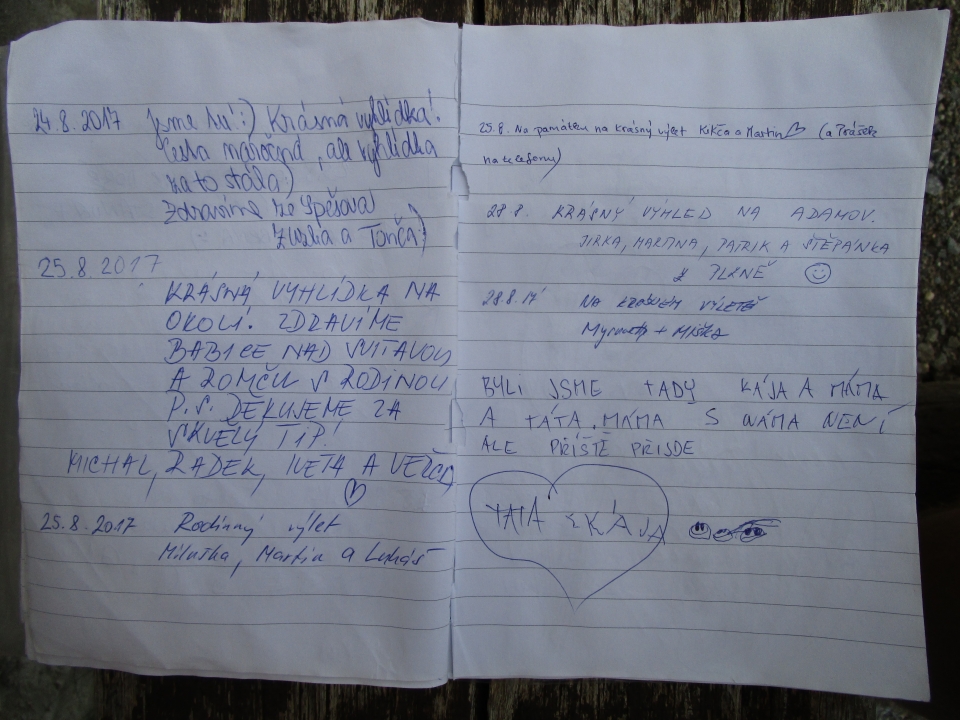 24.8.2017 Jsme tu! :) Krásná vyhlídka!
Cesta náročná, ale vyhlídka
za to stála :)
Zdravíme ze Spešova
Zuzka a Tonča :)
25.8.2017
KRÁSNÁ VYHLÍDKA NA
OKOLÍ. ZDRAVÍME
BABICE NAD SVITAVOU
A ROMČU S RODINOU
P.S. DĚKUJEME ZA
SKVĚLÝ TIP!
MICHAL, RADEK, IVETA A VERČA
25.8.2017 Rodinný výlet
Miluška, Martin a Lukáš
25.8. Na památku na krásný výlet Kikča a Martin (a Prášek
na telefonu)
28.8. KRÁSNÝ VÝHLED NA ADAMOV.
JIRKA, MARTINA, PATRIK A ŠTĚPÁNKA
Z PLZNĚ
28.8.17 NA KRÁSNÉM VÝLETĚ
+ MIŠKA
BYLI JSME TADY KÁJA A MÁMA
A TÁTA. MÁMA S NÁMA NENÍ
ALE PŘÍŠTĚ PŘIJDE
TATA KÁJA